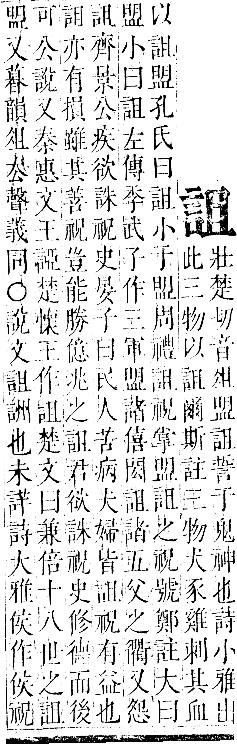 詛
壯楚切音俎盟詛誓于鬼神也詩小雅出
此三物以詛爾斯註三物犬豕雞刺其血
以詛盟孔氏曰詛小于盟周禮詛祝掌盟詛之祝號鄭註大曰
盟小曰詛左傳季武子作三軍盟諸僖閎詛諸五父之衢又怨
詛齊景公疾欲誅祝史晏子曰民人苦病夫婦皆詛祝有益也
詛亦有損雖其善祝豈能勝億兆之詛君欲誅祝史修德而後
可公說又秦惠文王詛楚懷王作詛楚文曰兼倍十八世之詛
盟又暮韻俎厺聲義同○說文詛詶也未詳詩大雅侯作侯祝